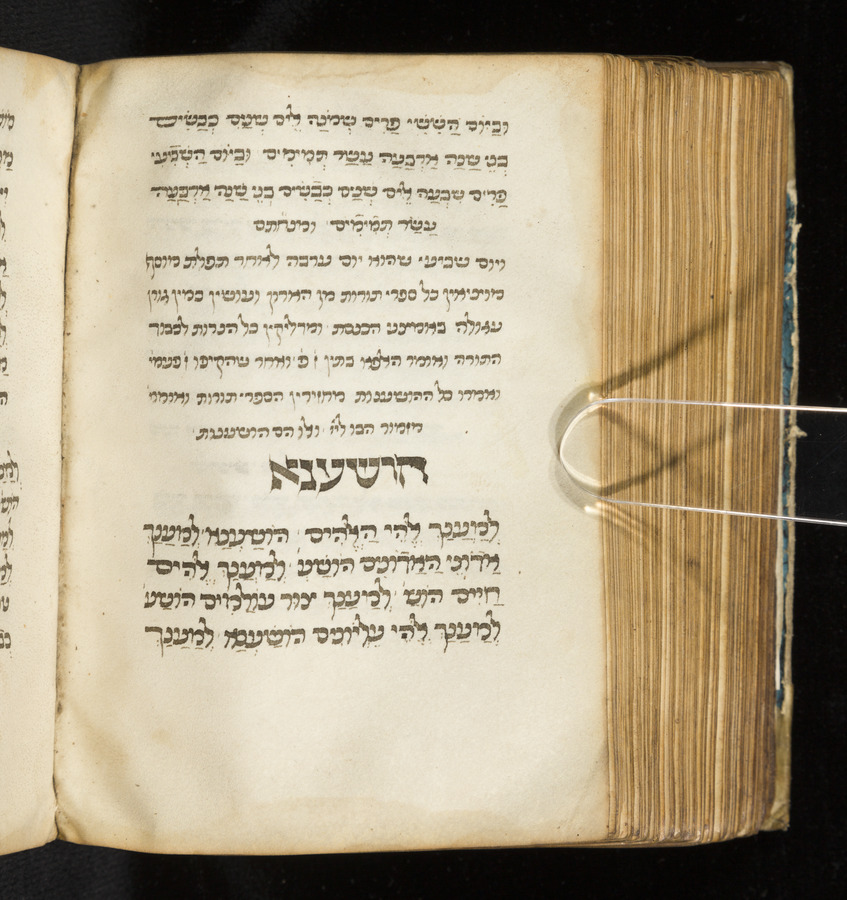 וביום הששי פרים שמנה אלים שנים כבשים
בני שנה ארבעה עשר תמימים וביום השביעי
פרים שבעה אלים שנים כבשים בני שנה ארבעה
עשר תמימים ומנחתם
ויום שביעי שהוא יום ערבה לאחר תפלת מוסף
מוציאין כל ספרי תורות מן הארון ועושין כמין גורן
עגולה באמצע הכנסת ומדליקין כל הנרות לכבוד
התורה ואומר ואחר שהקיפו ז פעמי
ואמרו כל ההושענות מחזירין הספרי תורות ואומרי
מזמור הבו ליי ואלו הם הושענות
הושענא
למענך אלהי האלהים הושענא למענך
אדוני האדונים הושע למענך אלהים
חיים הוש למענך יצור עולמים הושע
למענך אלהי עליונים הושענא למענך